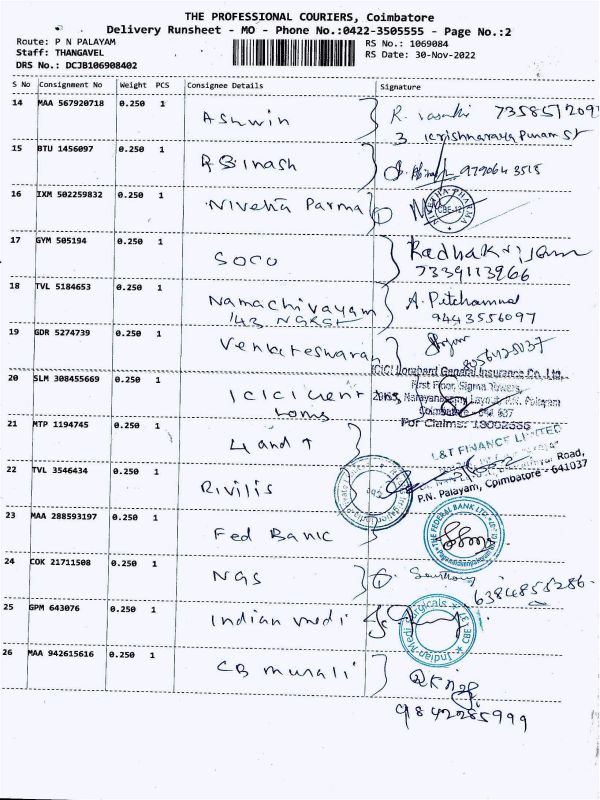 THE PROFESSIONAL COURIERS, Coimbatore
Delivery Runsheet - MO - Phone No.:0422-3505555 - Page No.:2
Route: P N PALAYAM
Staff: THANGAVEL
DRS No.: DCJB106908402
RS No.: 1069084
RS Date: 30-Nov-2022
S No Consignment No Weight PCS Consignee Details Signature
14 MAA 567920718 0.250 1 Ashwin
3 krishnaraya Puram St
15 BTU 1456097 0.250 1 9790643515
16 IXM 502259832 0.250 1 Niveha Parma
NIVETHA PHARMA
CBE-12
17 GYM 505194 0.250 1 Radhakrisam
7339113966
18 TVL 5184653 0.250 1 Namachivayam A. Pitchammal
9443556097
19 GDR 5274739 0.250 1 Venkatesharan
8056425037
20 SLM 308455669 0.250 1 ICICI
ICICI Lombard General Insurance Co. Ltd.,
First Floor, Sigma Towers,
Narayanasamy Layout, P.N. Palayam
Coimbatore - 641 037
For Claims:
21 MTP 1194745 0.250 1 L and T
L&T FINANCE LIMITED
Road,
P.N. Palayam, Coimbatore - 641037
22 TVL 3546434 0.250 1 Rivilis
23 MAA 288593197 0.250 1 Fed Bank
THE FEDERAL BANK LTD
24 COK 21711508 0.250 1 NGS
6384855286
25 GPM 643076 0.250 1 Indian medi
Indian Medi Surgicals
CBE
26 MAA 942615616 0.250 1 CB murali
9842285999